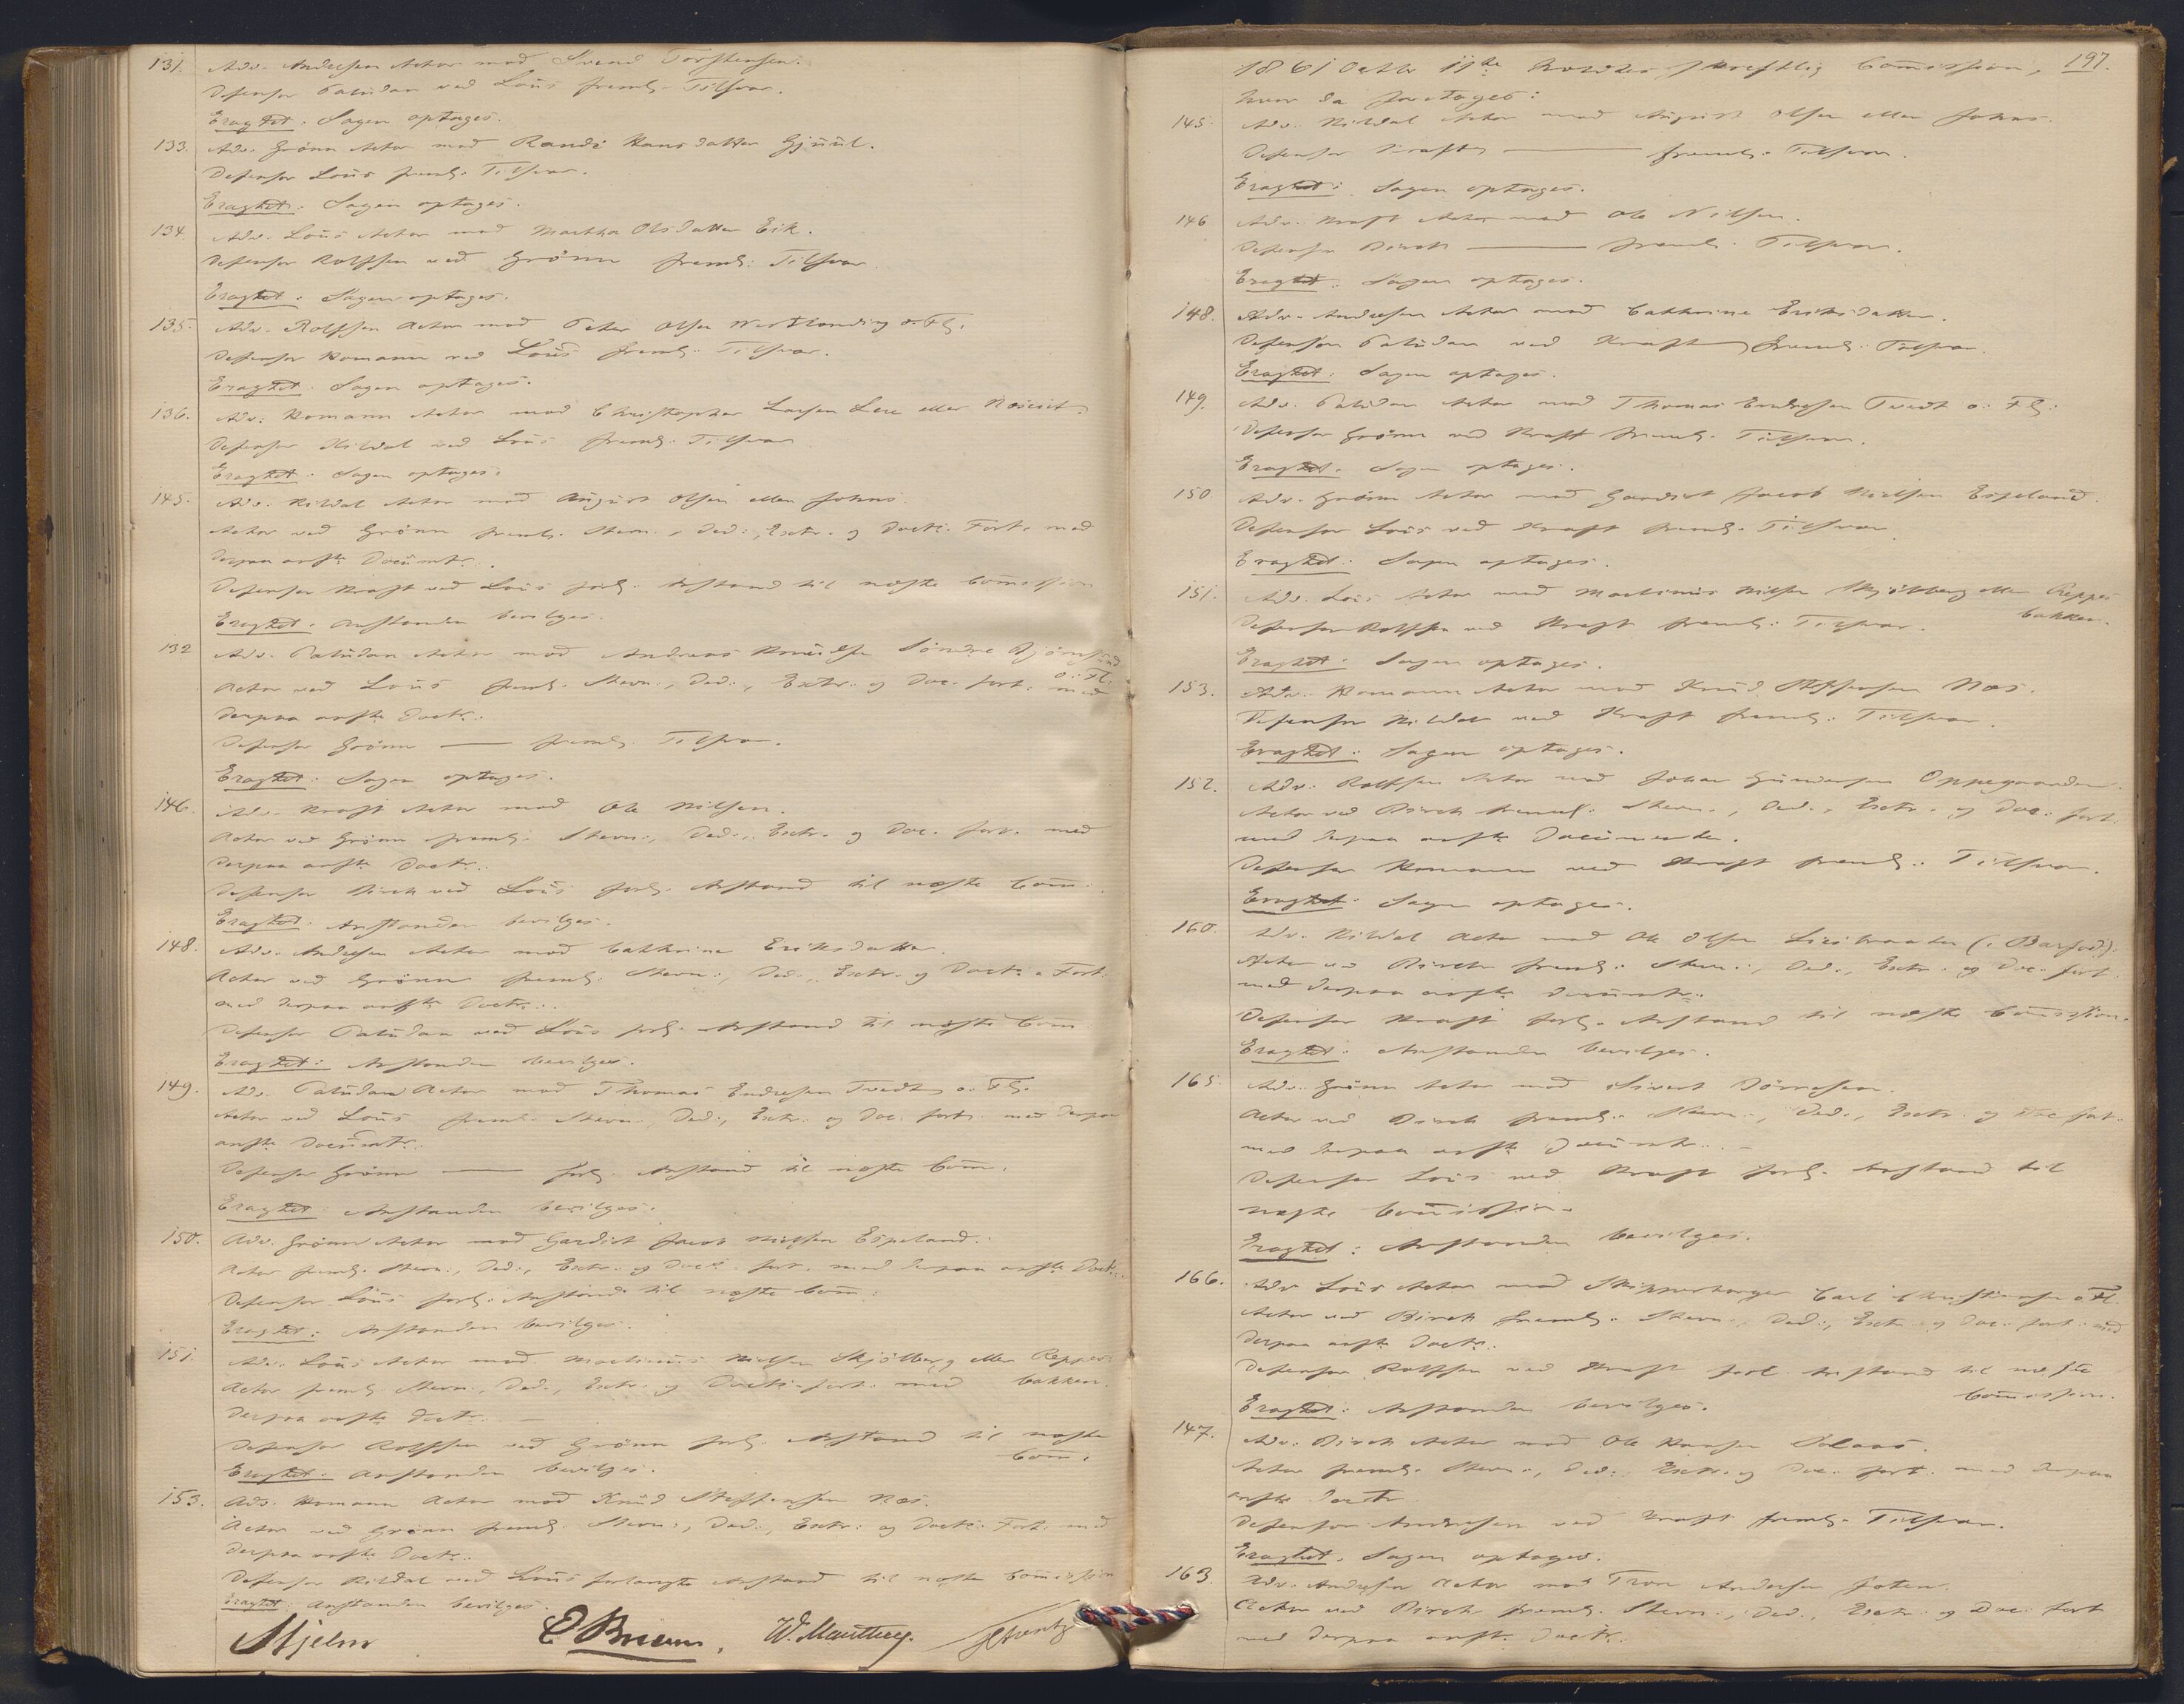 131. Adv. Andresen Actor mod Svend Torstensen.
Defensor Paludan ved Loüs freml. Tilsvar.
Eragtet: Sagen optages.
133. Adv. Grönn Actor mod Randi Hansdatter Gjüül.
Defensor Loüs freml. Tilsvar.
Eragtet: Sagen optages.
134. Adv. Loüs Actor mod Martha Olsdatter Eik.
Defensor Rolfsen ved Grönn freml: Tilsvar
Eragtet: Sagen optages.
135. Adv. Rolfsen Actor mod Peter Olsen o. Fl.
Defensor Homann ved Loüs freml. Tilsvar.
Eragtet. Sagen optages.
136. Adv: Homann Actor mod Christopher Larsen Lere eller
Defensor Kildal ved Loüs freml. Tilsvar
Eragtet: Sagen optages.
145. Adv. Kildal Actor mod Aügüst Olsen eller Johns
Actor ved Grönn freml. Stevn., Ded:, Extr. og Doctr. Fort. med
derpaa anfte Documtr.
Defensor Kraft ved Loüs forl. Anstand til næste Comission
Eragtet. Anstanden bevilges.
132 Adv. Paludan Actor mod Andreas Knüdsen Söndre Björnsünd
o. Fl.
Actor ved Loüs freml. Stevn., Ded:, Extr. og Doc. fort. med
derpaa anfte Doctr.
Defensor Grönn — freml. Tilsvar.
Eragtet: Sagen optages.
146. Adv. Kraft Actor mod Ole Nilsen.
Actor ved Grönn freml. Stevn., Ded:, Extr. og Doc. fort. med
derpaa anfte Doctr.
Defensor Birch ved Loüs forl. Anstand til næste Com:
Eragtet: Anstanden bevilges.
148. Adv. Andresen Actor mod Cathrine Eriksdatter
Actor ved Grönn freml. Stevn., Ded:, Extr. og Doctr. Fort.
med derpaa anfte Doctr.
Defensor Paludan ved Loüs forl. Anstand til næste Com
Eragtet: Anstanden bevilges.
149. Adv. Paludan Actor mod Thomas Endresen Tvedt o. Fl.
Actor ved Loüs freml. Stevn., Ded., Extr. og Doc. fort. med derpaa
anfte Documtr.
Defensor Grönn — forl. Anstand til næste Com.
Eragtet: Anstanden bevilges.
150. Adv. Grönn Actor mod Gardist Jacob Nielsen Espeland.
Actor freml. Stevn., Ded., Extr. og Doctr. fort. med derpaa anfte Doctr.
Defensor Loüs forl. Anstand til næste Com:
Eragtet: Anstanden bevilges.
151. Adv. Loüs Actor mod Martinüs Nielsen Skjölberg eller Reppes
bakken.
Actor freml. Stevn., Ded., Extr. og Doctr. fort. med
derpaa anfte Doctr.
Defensor Rolfsen ved Grönn forl. Anstand til næste
Com.
Eragtet: Anstanden bevilges.
153. Adv. Homann Actor mod Knüd Steffensen Næs.
Actor ved Grönn freml. Stevn., Ded., Extr. og Doctr. Fort. med
derpaa anfte Doctr.
Defensor Kildal ved Loüs forlangte Anstand til næste Comission
Eragtet: Anstanden bevilges.
Hjelm
197.
1861 Octbr 11te Holdtes skriftlig Comission,
hvor da foretages:
145. Adv. Kildal Actor mod Aügüst Olsen eller Johns.
Defensor Kraft — freml. Tilsvar.
Eragtet: Sagen optages.
146 Adv. Kraft Actor mod Ole Nilsen.
Defensor Birch — freml. Tilsvar.
Eragtet: Sagen optages.
148. Adv. Andresen Actor mod Cathrine Eriksdatter.
Defensor Paludan ved Kraft freml. Tilsvar.
Eragtet: Sagen optages.
149. Adv. Paludan Actor mod Thomas Endresen Tvedt o. Fl.
Defensor Grönn ved Kraft freml. Tilsvar.
Eragtet. Sagen optages.
150 Adv. Grönn Actor mod Gardist Jacob Nielsen Espeland.
Defensor Loüs ved Kraft freml. Tilsvar.
Eragtet: Sagen optages.
151. Adv. Loüs Actor mod Martinüs Nilsen Skjölberg eller Reppes
bakken.
Defensor Rolfsen ved Kraft freml: Tilsvar.
Eragtet: Sagen optages.
153. Adv. Homann Actor mod Knüd Steffensen Næs.
Defensor Kildal ved Kraft freml: Tilsvar.
Eragtet: Sagen optages.
152. Adv. Rolfsen Actor mod Johan Gündersen Oppegaarden.
Actor ved Birch freml. Stevn., Ded., Extr. og Doc. fort.
med derpaa anfte Documenter.
Defensor Homann ved Kraft freml: Tilsvar.
Eragtet: Sagen optages.
160. Adv. Kildal Actor mod Ole Olsen
Actor ved Birch freml. Stevn., Ded., Extr. og Doc. fort.
med derpaa anfte Documtr.
Defensor Kraft forl. Anstand til næste Comission.
Eragtet: Anstanden bevilges.
165. Adv. Grönn Actor mod Sivert Dörresen.
Actor ved Birch freml. Stevn., Ded., Extr. og Doc fort.
med derpaa anfte Documtr.
Defensor Loüs ved Kraft forl. Anstand til
næste Comission.
Eragtet: Anstanden bevilges.
166. Adv Loüs Actor mod Skipperborger Carl Christiansen o Fl.
Actor ved Birch freml. Stevn., Ded., Extr. og Doc. fort. med
derpaa anfte Doctr.
Defensor Rolfsen ved Kraft forl Anstand til næste
Comission.
Eragtet: Anstanden bevilges.
147. Adv. Birch Actor mod Ole Hansen
Actor freml. Stevn., Ded., Extr. og Doc. fort. med derpaa
anfte Doctr
Defensor Andresen ved Kraft freml. Tilsvar.
Eragtet. Sagen optages.
163. Adv. Andresen Actor mod Tron Andersen Joten.
Actor ved Birch freml. Stevn., Ded., Extr. og Doc. fort
med derpaa anfte Doctr.